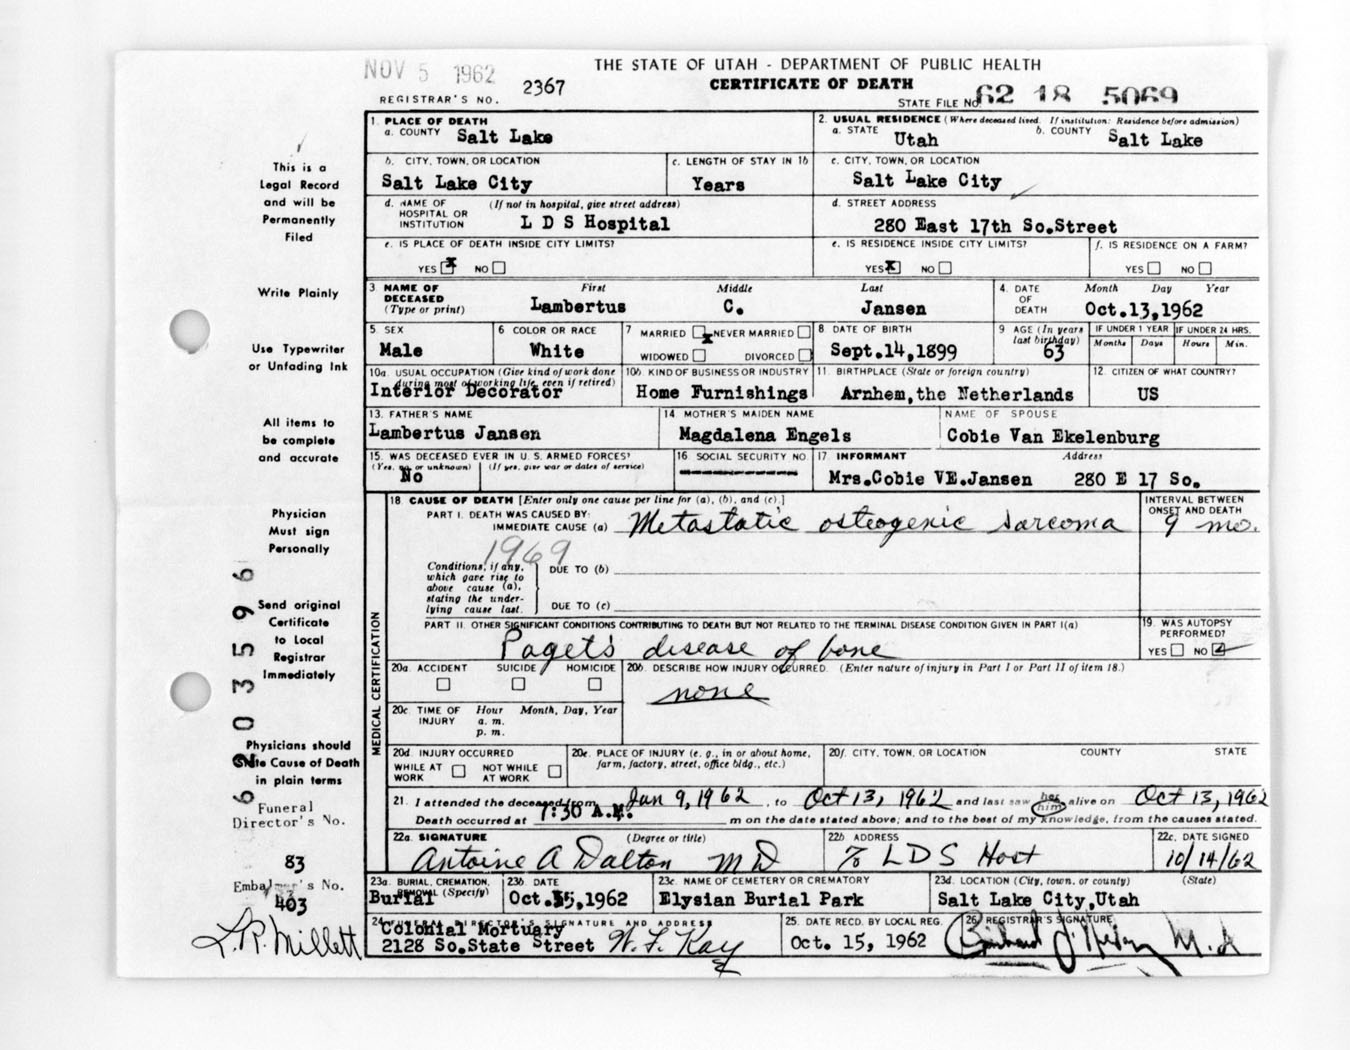 NOV 5 1962
THE STATE OF UTAH - DEPARTMENT OF PUBLIC HEALTH
2367
CERTIFICATE OF DEATH
REGISTRAR'S NO.
STATE FILE NO. 62 18 5069
1. PLACE OF DEATH
a. COUNTY Salt Lake
2. USUAL RESIDENCE (Where deceased lived. If institution: Residence before admission)
a. STATE Utah b. COUNTY Salt Lake
b. CITY, TOWN, OR LOCATION
Salt Lake City
c. LENGTH OF STAY IN 1b
Years
c. CITY, TOWN, OR LOCATION
Salt Lake City
d. NAME OF HOSPITAL OR INSTITUTION (If not in hospital, give street address)
L D S Hospital
d. STREET ADDRESS
280 East 17th So.Street
e. IS PLACE OF DEATH INSIDE CITY LIMITS?
YES x NO
e. IS RESIDENCE INSIDE CITY LIMITS?
YES x NO
f. IS RESIDENCE ON A FARM?
YES NO
3. NAME OF DECEASED (Type or print)
First Middle Last
Lambertus C. Jansen
4. DATE OF DEATH Month Day Year
Oct.13,1962
5. SEX
Male
6 COLOR OR RACE
White
7 MARRIED x NEVER MARRIED
WIDOWED DIVORCED
8 DATE OF BIRTH
Sept.14,1899
9 AGE (In years last birthday)
63
IF UNDER 1 YEAR
Months Days
IF UNDER 24 HRS.
Hours Min.
10a. USUAL OCCUPATION (Give kind of work done during most of working life, even if retired)
Interior Decorator
10b. KIND OF BUSINESS OR INDUSTRY
Home Furnishings
11. BIRTHPLACE (State or foreign country)
Arnhem,the Netherlands
12. CITIZEN OF WHAT COUNTRY?
US
13. FATHER'S NAME
Lambertus Jansen
14 MOTHER'S MAIDEN NAME
Magdalena Engels
NAME OF SPOUSE
Cobie Van Ekelenburg
15. WAS DECEASED EVER IN U. S. ARMED FORCES?
(Yes, no, or unknown) (If yes, give war or dates of service)
No
16 SOCIAL SECURITY NO.
----------
17 INFORMANT Address
Mrs.Cobie VE.Jansen 280 E 17 So.
MEDICAL CERTIFICATION
18. CAUSE OF DEATH [Enter only one cause per line for (a), (b), and (c).]
PART I. DEATH WAS CAUSED BY:
IMMEDIATE CAUSE (a) Metastatic osteogenic sarcoma
INTERVAL BETWEEN ONSET AND DEATH
9 mo.
1969
Conditions, if any, which gave rise to above cause (a), stating the under-lying cause last.
DUE TO (b)
DUE TO (c)
PART II. OTHER SIGNIFICANT CONDITIONS CONTRIBUTING TO DEATH BUT NOT RELATED TO THE TERMINAL DISEASE CONDITION GIVEN IN PART I(a)
Paget's disease of bone
19. WAS AUTOPSY PERFORMED?
YES NO
20a. ACCIDENT SUICIDE HOMICIDE
20b. DESCRIBE HOW INJURY OCCURRED. (Enter nature of injury in Part I or Part II of item 18.)
none
20c. TIME OF INJURY Hour Month, Day, Year
a. m.
p. m.
20d. INJURY OCCURRED
WHILE AT WORK NOT WHILE AT WORK
20e. PLACE OF INJURY (e. g., in or about home, farm, factory, street, office bldg., etc.)
20f. CITY, TOWN, OR LOCATION COUNTY STATE
21. I attended the deceased from Jan 9, 1962, to Oct 13, 1962 and last saw her him alive on Oct 13, 1962
Death occurred at 7:30 A.M. m on the date stated above; and to the best of my knowledge, from the causes stated.
22a. SIGNATURE (Degree or title)
Antoine A Dalton M D
22b ADDRESS
% L D S Host
22c. DATE SIGNED
10/14/62
23a. BURIAL, CREMATION, REMOVAL (Specify)
Burial
23b DATE
Oct.15,1962
23c. NAME OF CEMETERY OR CREMATORY
Elysian Burial Park
23d. LOCATION (City, town, or county) (State)
Salt Lake City,Utah
24 FUNERAL DIRECTOR'S SIGNATURE AND ADDRESS
Colonial Mortuary
2128 So.State Street W. F. Kay
25. DATE RECD. BY LOCAL REG.
Oct. 15, 1962
26. REGISTRAR'S SIGNATURE
M.D
This is a
Legal Record
and will be
Permanently
Filed
Write Plainly
Use Typewriter
or Unfading Ink
All items to
be complete
and accurate
Physician
Must sign
Personally
Send original
Certificate
to Local
Registrar
Immediately
Physicians should
State Cause of Death
in plain terms
6203596
Funeral
Director's No.
83
Embalmer's No.
403
L.R. Millett